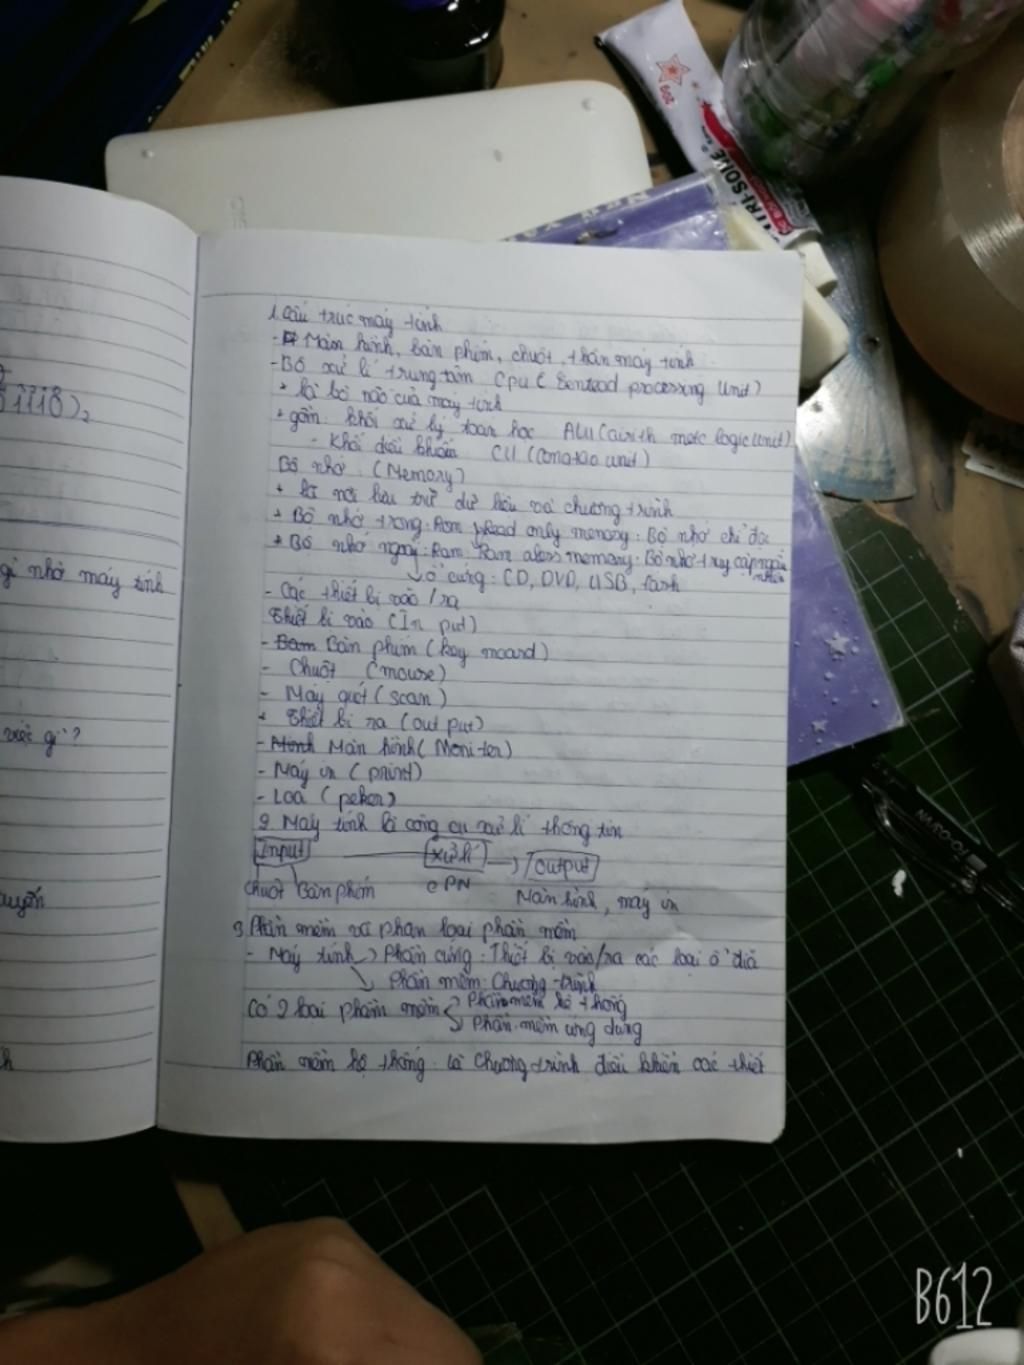 1118)₂
gì nhờ máy tính
việc gì?
1. Cấu trúc máy tính
- Màn hình, bàn phím, chuột, thân máy tính
- Bộ xử lí trung tâm Cpu ( Sentead processing Unit)
+ là bộ não của máy tính
+ gồm: khối xử lý toán học ALU (airith metc logic Unit)
- Khối điều khiển CU ( unit)
Bộ nhớ : (Memory)
+ là nơi lưu trữ dữ liệu và chương trình
+ Bộ nhớ trong: Rom Read only memory: Bộ nhớ chỉ đọc
+ Bộ nhớ ngoài: Ram: Ram aless memory: Bộ nhớ truy cập ngẫu nhiên
↓ ổ cứng: CD, DVD, USB, flash
- Các thiết bị vào / ra
Thiết bị vào (In put)
- Bàn phím (key moard)
- Chuột (mouse)
- Máy quét (scan)
+ Thiết bị ra (out put)
- Màn hình (Moni ter)
- Máy in (print)
- Loa (peker)
2 Máy tính là công cụ xử lí thông tin
Input xử lí → output
chuột bàn phím CPN Màn hình, máy in
3 Phần mềm và phân loại phần mềm
- Máy tính → Phần cứng: Thiết bị vào/ra các loại ổ đĩa
↘ Phần mềm: Chương trình
Có 2 loại phần mềm Phần mềm hệ thống
Phần mềm ứng dụng
Phần mềm hệ thống: là chương trình điều khiển các thiết
TRI-SOLVE
B612